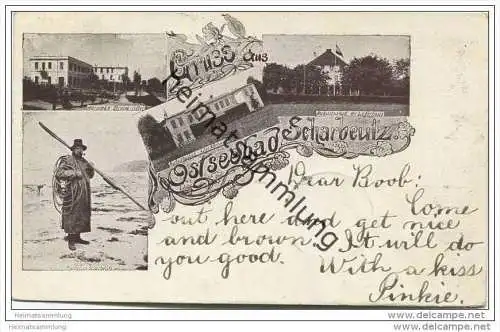 Gruss aus
Ostseebad Scharbeutz.
Dear Boob:
Come
out here and get nice
and brown. It will do
you good. With a kiss
Pinkie.
heimatsammlung
Heimatsammlung
Heimatsammlung